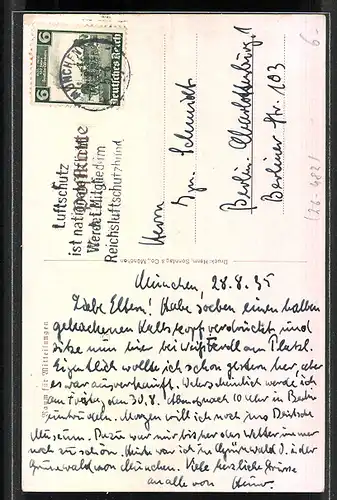 6
6
Deutsches Reich
MÜNCHEN
Luftschutz
ist nationale Pflicht
Werdet Mitglied im
Reichsluftschutzbund
Herrn
Schmidt
Berlin-Charlottenburg 1
Berliner Str. 103
Druck: Herm. Sonntag & Co., München
Raum für Mitteilungen
München, 28.8.35
Liebe Eltern! Habe soeben einen halben
gebackenen Kalbskopf verdrückt und
sitze nun hier bei Weißferdl am Platzl.
Eigentlich wollte ich schon gestern her, aber
es war ausverkauft. Wahrscheinlich werde ich
am Freitag den 30.8. abends nach 10 Uhr in Berlin
eintrudeln. Morgen will ich noch ins Deutsche
Museum. Dazu war mir bisher das Wetter immer
noch zu schön. Heute war ich in Grünwald d. i. der
Grunewald von München. Viele herzliche Grüsse
an alle von